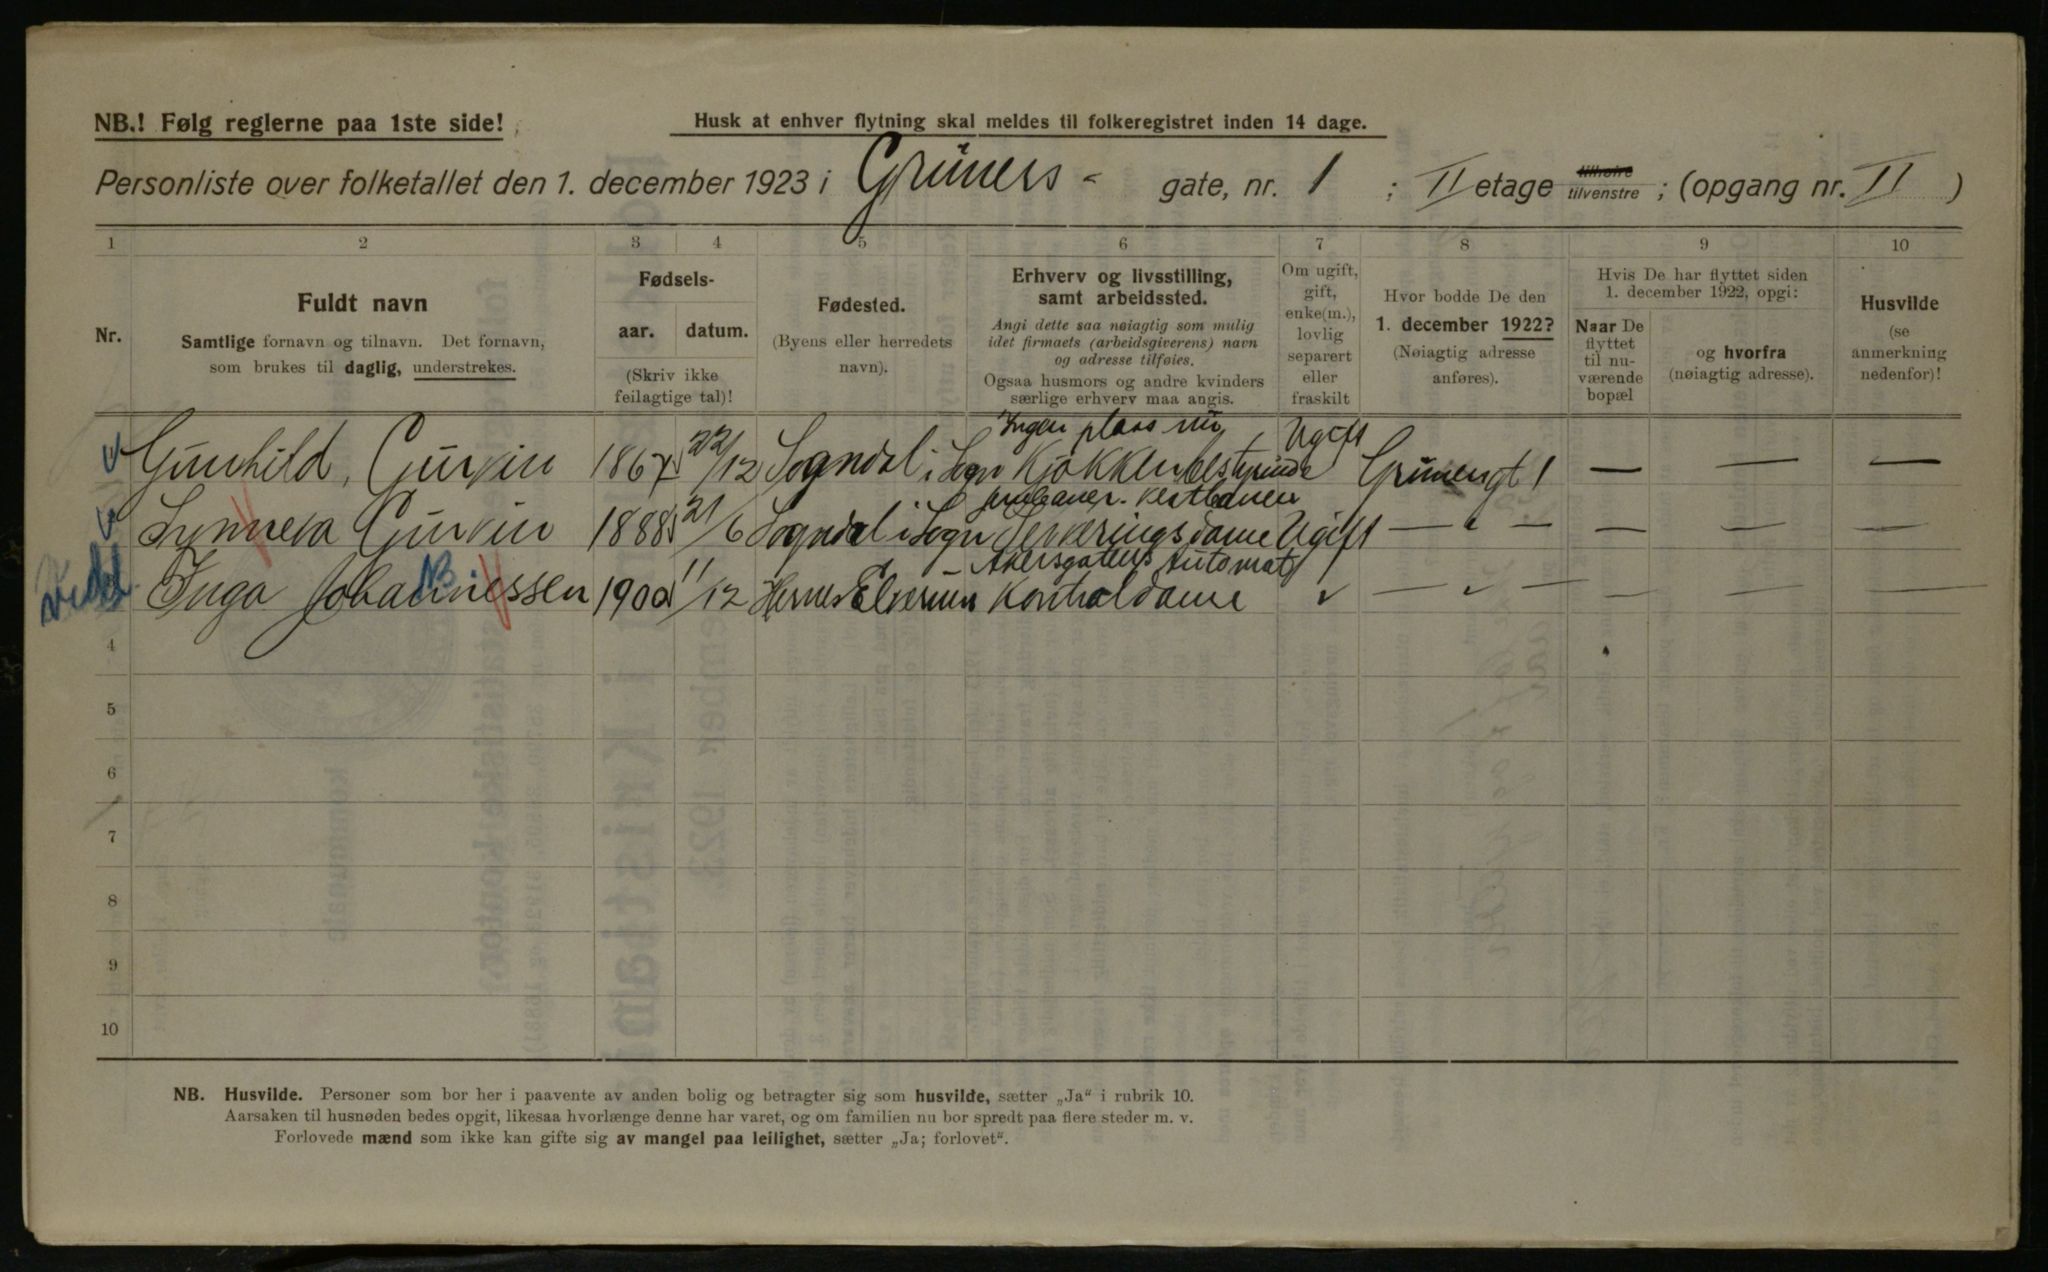 NB.! Følg reglerne paa 1ste side!
Husk at enhver flytning skal meldes til folkeregistret inden 14 dage.
Personliste over folketallet den 1. december 1923 i Grüners - gate, nr. 1 ; II etage tilhøire tilvenstre ; (opgang nr. II )
1 2 3 4 5 6 7 8 9 10
Nr.
Fuldt navn
Samtlige fornavn og tilnavn. Det fornavn,
som brukes til daglig, understrekes.
Fødsels-
aar. datum.
(Skriv ikke
feilagtige tal)!
Fødested.
(Byens eller herredets
navn).
Erhverv og livsstilling,
samt arbeidssted.
Angi dette saa nøiagtig som mulig
idet firmaets (arbeidsgiverens) navn
og adresse tilføies.
Ogsaa husmors og andre kvinders
særlige erhverv maa angis.
Om ugift,
gift,
enke(m.),
lovlig
separert
eller
fraskilt
Hvor bodde De den
1. december 1922?
(Nøiagtig adresse
anføres).
Hvis De har flyttet siden
1. december 1922, opgi:
Naar De
flyttet
til nu-
værende
bopæl
og hvorfra
(nøiagtig adresse).
Husvilde
(se
anmerkning
nedenfor)!
Ingen plass nu
Gunhild, Gurvin 1867 22/12 Sogndal i Sogn Kjøkkenbestyrinde Ugift Grünersgt 1 — — —
Synneva Gurvin 1888 21/6 Sogndal i Sogn Serveringsdame Ugift — " — — — —
Akersgatens Automat
Inga Johannessen NB. 1900 11/12 Hernes Elverum Kontroldame " — " — — — —
4
5
6
7
8
9
10
NB. Husvilde. Personer som bor her i paavente av anden bolig og betragter sig som husvilde, sætter „Ja“ i rubrik 10.
Aarsaken til husnøden bedes opgit, likesaa hvorlænge denne har varet, og om familien nu bor spredt paa flere steder m. v.
Forlovede mænd som ikke kan gifte sig av mangel paa leilighet, sætter „Ja; forlovet“.